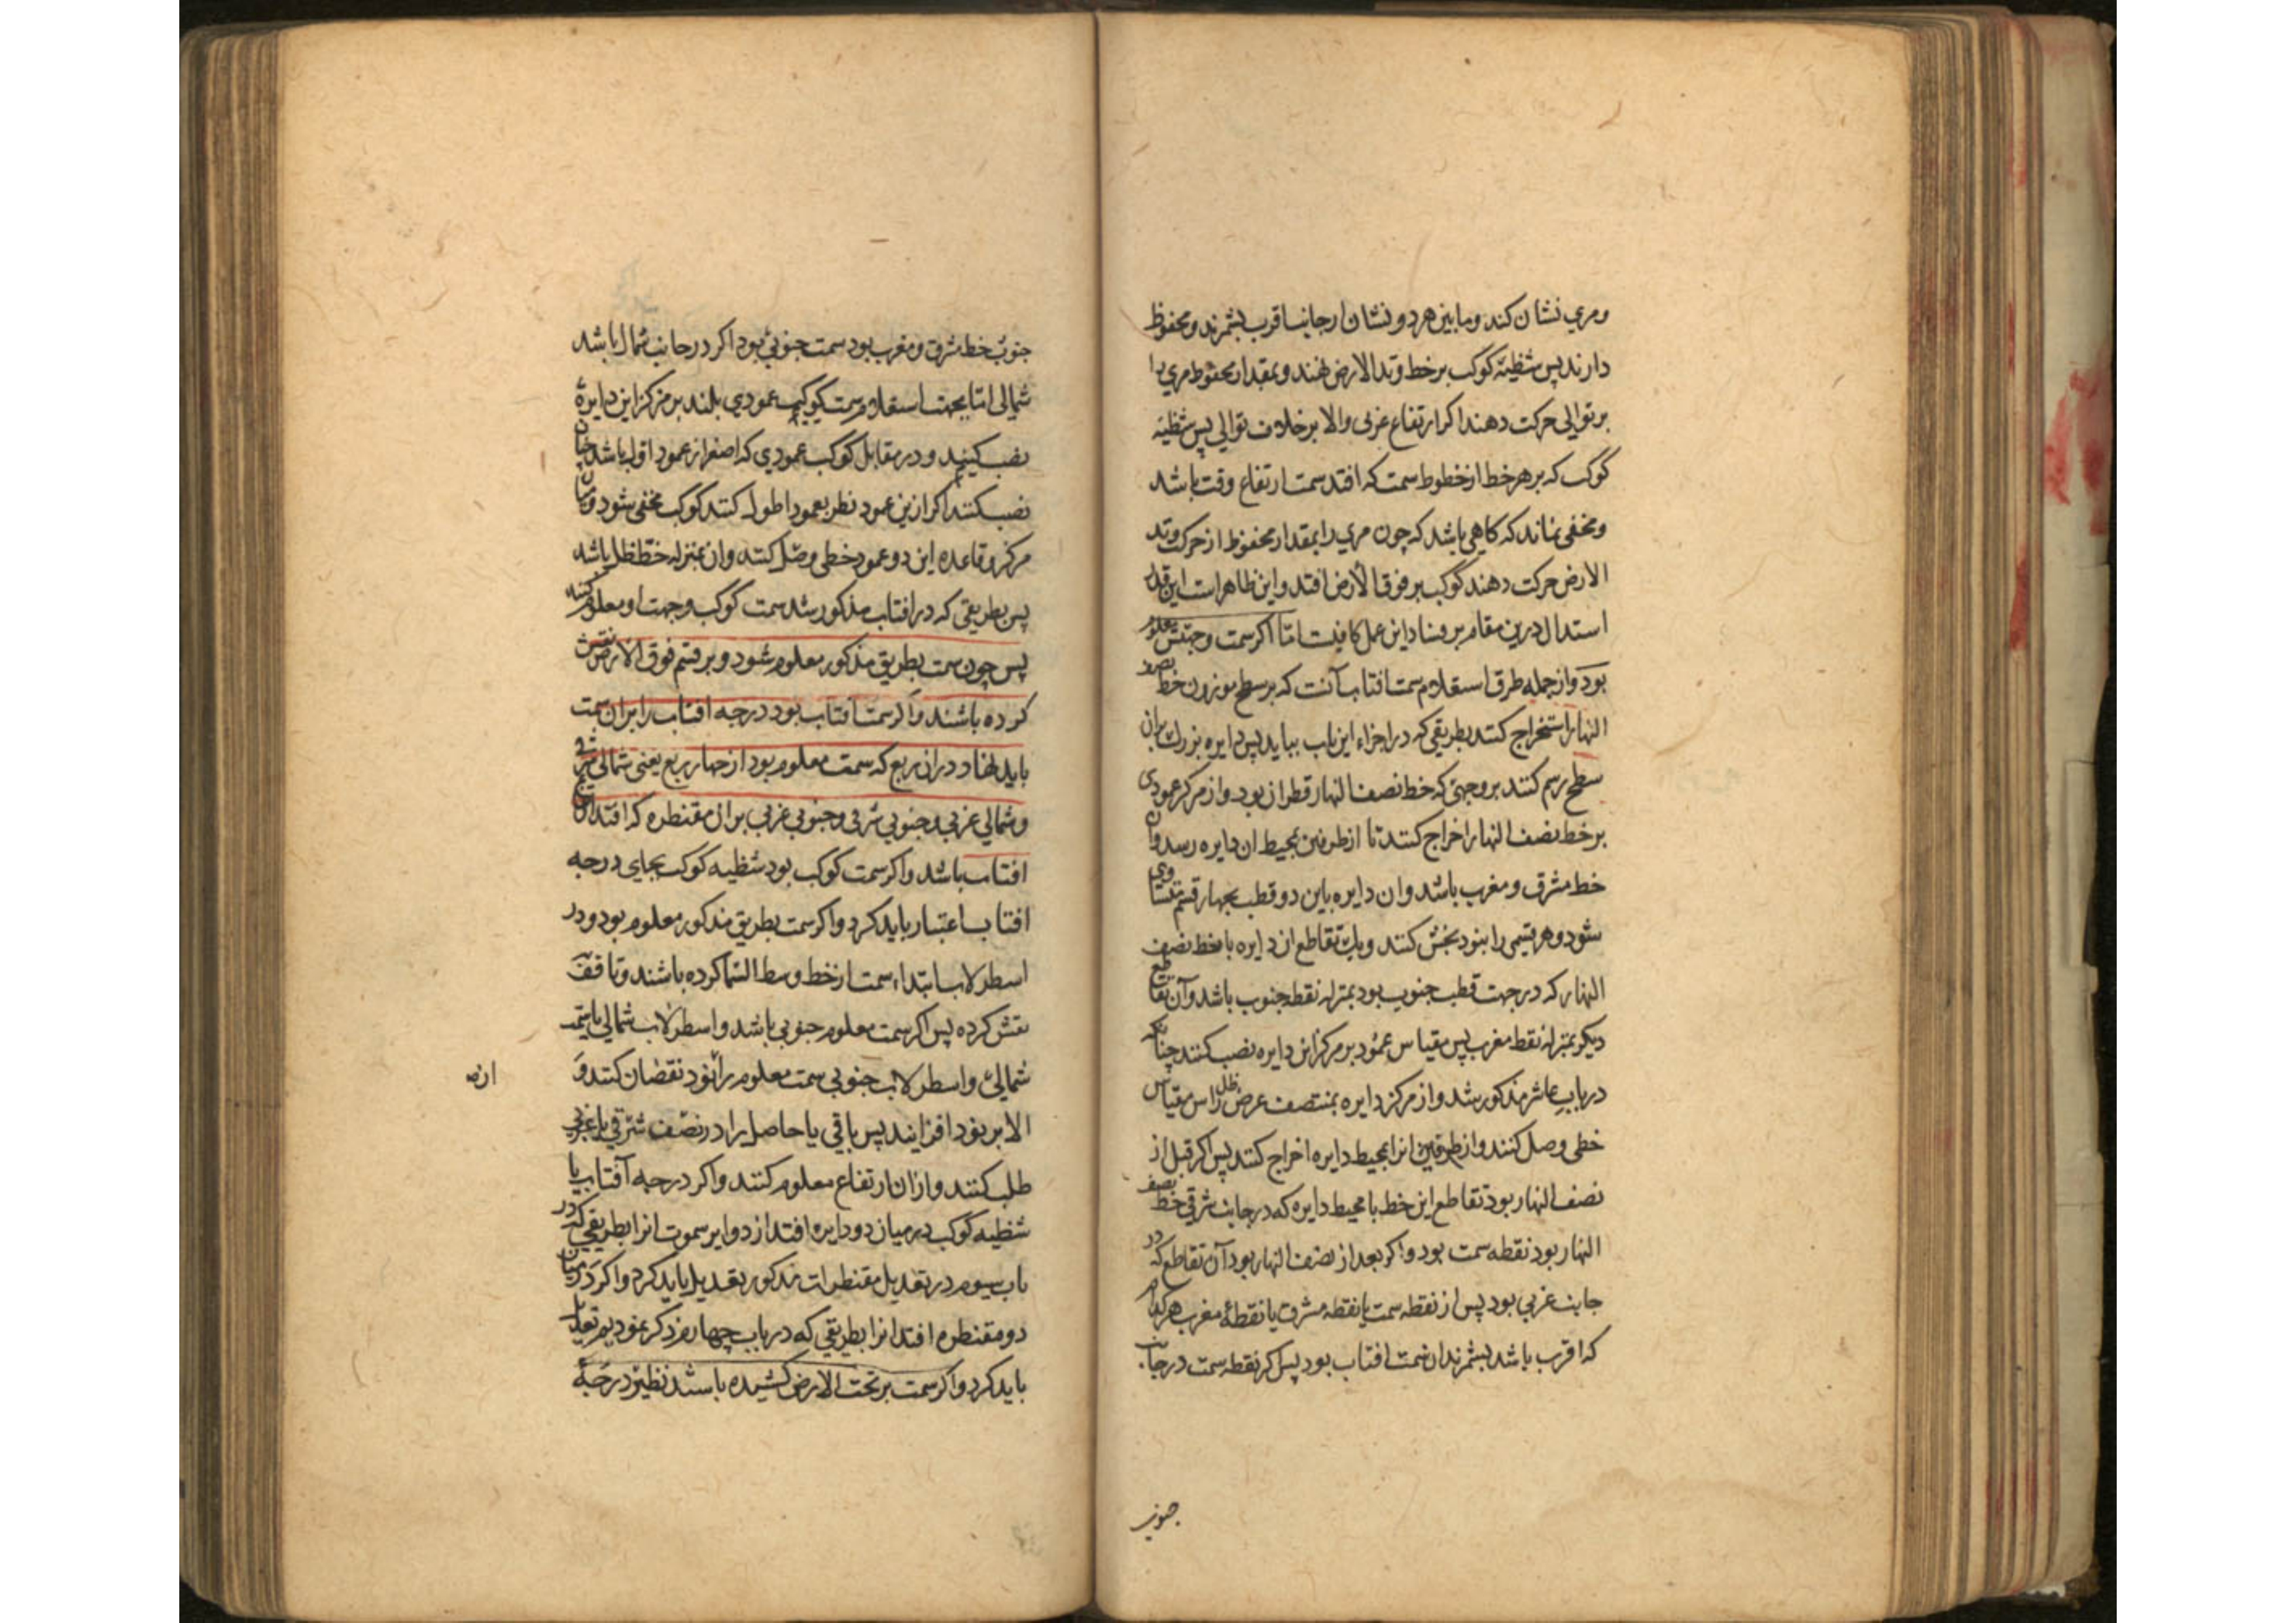 ومری نشان کند ومابین هر دو نشان ازجانب اقرب بشمرند ومحفوظ
دارند پس شظیه کوکب برخط وتدالارض نهند وبمقدار محفوظ مری را
بر توالی حرکت دهند اکر ارتفاع غربی والا بر خلاف توالی پس شظیه
کوکب که بر هر خط از خطوط سمت که افتد سمت ارتفاع وقت باشد
ومخفی نماند که کاهی باشد که چون مری را بمقدار محفوظ از حرکت وتد
الارض حرکت دهند کوکب بر فوق الارض افتد واین ظاهراست این قدر
استدلال درین مقام بر فساد این عمل کافیست اما اکر سمت وجهتش معلوم
بود واز جمله طرق استعلام سمت افتاب آنست که بر سطح موزون خط نصف
النهار استخراج کنند بطریقی که در اجزاء این باب بیاید پس دایره بزرک بران
سطح رسم کنند بر وجهی که خط نصف النهار قطر ان بود واز مرکز عمودی
بر خط نصف النهار اخراج کنند تا از طرفین بمحیط ان دایره رسد وان
خط مشرق ومغرب باشد وان دایره باین دو قطب بچهار قسم متساوی
شود وهر قسمی را بنود بخش کنند ویک تقاطع ان دایره با خط نصف
النهار که در جهت قطب جنوب بود بمنزله نقطه جنوب باشد وآن تقاطع
دیکر بمنزله نقط مغرب پس مقیاس عمود بر مرکز این دایره نصب کنند چنانکه
در باب عاشر مذکور شد واز مرکز دایره بمنتصف عرض ظل راس مقیاس
خطی وصل کنند واز طرفین انرا بمحیط دایره اخراج کنند پس اکر قبل از
نصف النهار بود تقاطع این خط با محیط دایره که در جانب شرقی خط نصف
النهار بود نقطه سمت بود واکر بعد از نصف النهار بود آن تقاطع که در
جانب غربی بود پس از نقطه سمت یا نقطه مشرق یا نقطه مغرب هر کدام
که اقرب باشد بشمرند ان سمت افتاب بود پس اکر نقطه سمت در جانب
جنوب
جنوب خط مشرق ومغرب بود سمت جنوبی بود اکر در جانب شمال باشد
شمالی اما بجهت استعلام سمت کوکب عمودی بلند بر مرکز این دایره
نصب کنند ودر مقابل کوکب عمودی که اصغر از عمود اول باشد چنان
نصب کنند اکر ازین عمود نظر بعمود اطول کنند کوکب مخفی شود ومیان
مرکز وقاعده این دو عمود خطی وصل کنند وان بمنزله خط ظل باشد
پس بطریقی که در افتاب مذکور شد سمت کوکب وجهت او معلوم کنند
پس چون سمت بطریق مذکور معلوم شود وبر قسم فوق الارض نقش
کرده باشند واکر سمت افتاب بود درجه افتاب را بران سمت
باید نهاد در ان ربع که سمت معلوم بود از چهار ربع یعنی شمالی شرقی
وشمالی غربی وجنوبی شرقی وجنوبی غربی بران مقنطره که افتد ارتفاع
افتاب باشد واکر سمت کوکب بود شظیه کوکب بجای درجه
افتاب اعتبار باید کرد واکر سمت بطریق مذکور معلوم بود ودر
اسطرلاب ابتداء سمت از خط وسط السما کرده باشند وتا افق
نقش کرده پس اکر سمت معلوم جنوبی باشد واسطرلاب شمالی یا سمت
شمالی واسطرلاب جنوبی سمت معلوم را از نود نقصان کنند و
الا بر نود افزایند پس باقی یا حاصل را در نصف شرقی یا غربی
طلب کنند وازان ارتفاع معلوم کنند واکر درجه آفتاب یا
شظیه کوکب در میان دو دایره افتد از دوایر سموت انرا بطریقی که در
باب سیوم در تعدیل مقنطرات مذکور تعدیل باید کرد واکر در میان
دو مقنطره افتد انرا بطریقی که در باب چهارم ذکر نمودیم تعدیل
باید کرد واکر سمت بر تحت الارض کشیده باشند نظیر درجه